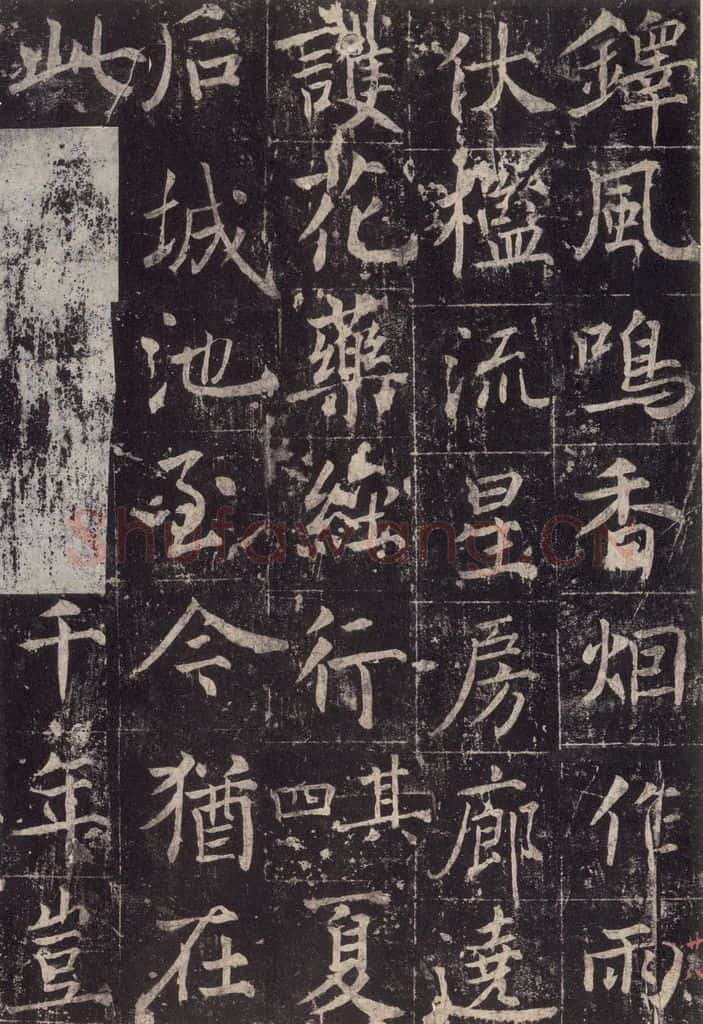 鐸風鳴香烟作雨
伏檻流星房廊遶
護花藥縱行其四夏
后城池至今猶在
此千年豈
Shufawang.cn